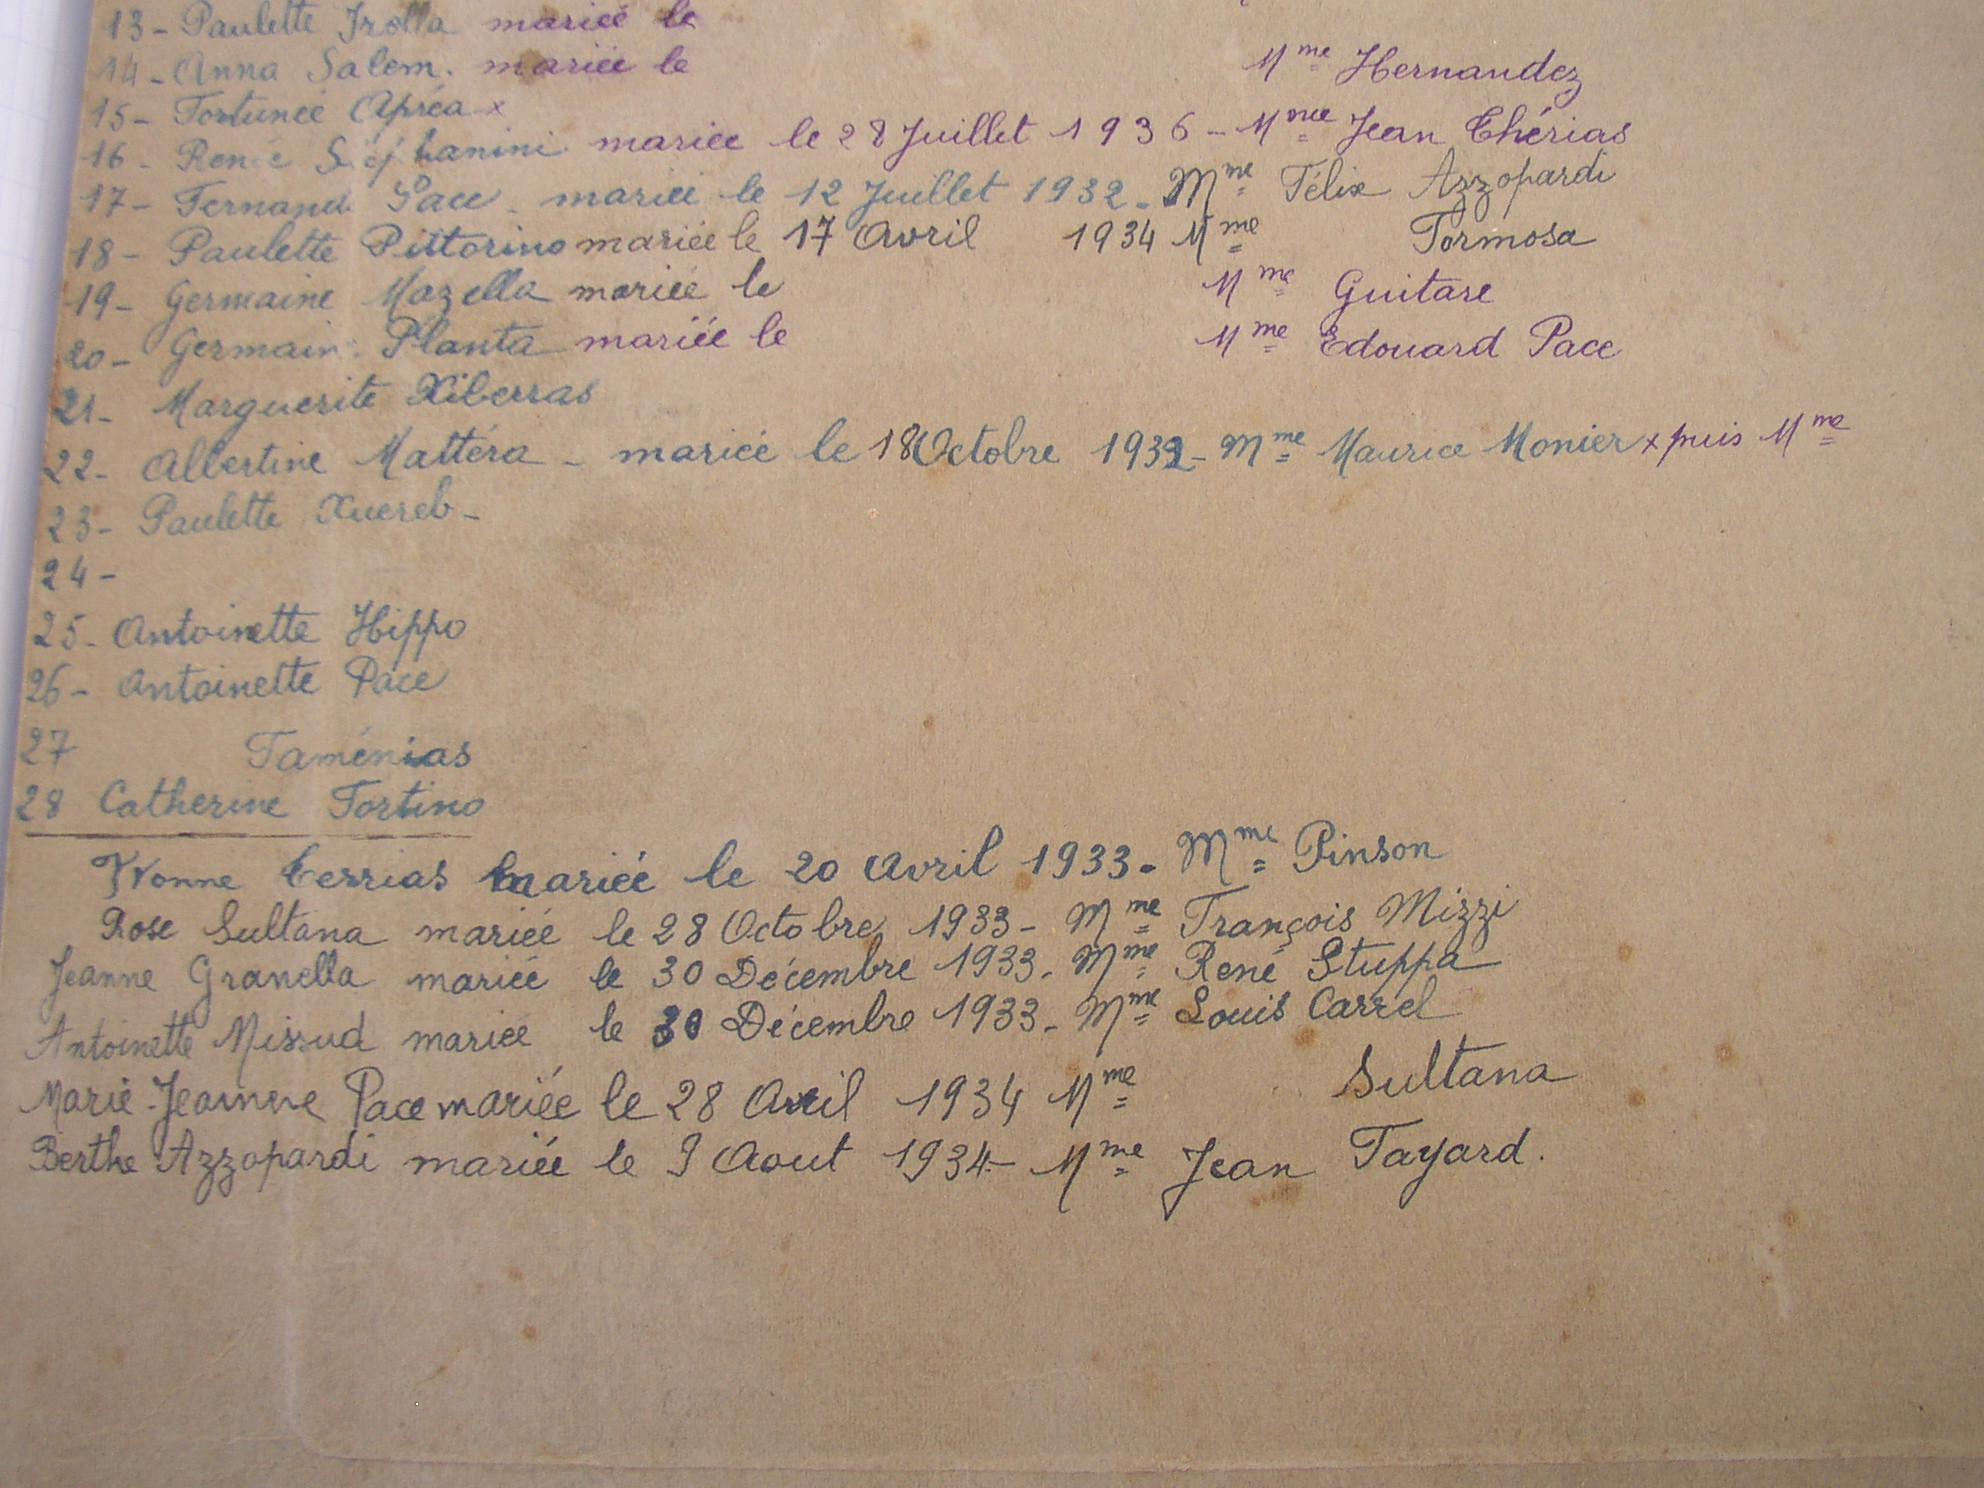 13 - Paulette Irolla mariée le
14 - Anna Salem. mariée le Mme Hernandez
15 - Fortunée Apréa x
16 - Renée Stéphanini mariée le 28 Juillet 1936 - Mme Jean Chérias
17 - Fernand Pace - mariée le 12 Juillet 1932 - Mme Félix Azzopardi
18 - Paulette Pittorino mariée le 17 Avril 1934 Mme Tormosa
19 - Germaine Mazella mariée le Mme Guitare
20 - Germain Planta mariée le Mme Edouard Pace
21 - Marguerite Xiberras
22 - Albertine Mattéra - mariée le 18 Octobre 1932 - Mme Maurice Monier x puis Mme
23 - Paulette Xuereb -
24 -
25 - Antoinette Hippo
26 - Antoinette Pace
27 Taménias
28 Catherine Fortino
Yvonne Cerrias mariée le 20 Avril 1933 - Mme Pinson
Rose Sultana mariée le 28 Octobre 1933 - Mme François Mizzi
Jeanne Granella mariée le 30 Décembre 1933 - Mme René Stuppa
Antoinette Missud mariée le 30 Décembre 1933 - Mme Louis Carrel
Marie-Jeanne Pace mariée le 28 Avril 1934 Mme Sultana
Berthe Azzopardi mariée le 9 Aout 1934 - Mme Jean Tayard.